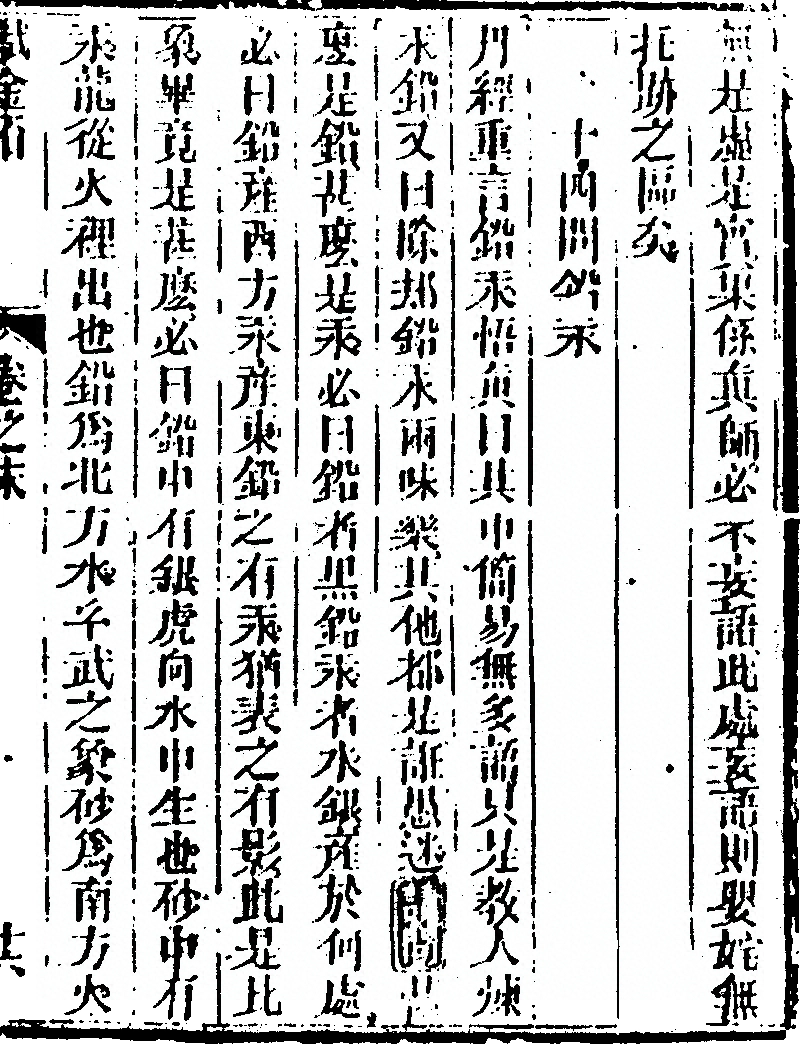 無是處是宮果係真師必不妄語此處妄語則嬰姹無
托跡之區矣
十四問鉛汞
丹經重言鉛汞悟真曰其中簡易無多語只是教人煉
汞鉛又曰除却鉛汞兩味藥其他都是誑愚迷
麼是鉛甚麼是汞必曰鉛者黑鉛汞者水銀産於何處
必曰鉛産西方汞産東鉛之有汞猶表之有影此是比
象畢竟是甚麼必曰鉛中有銀虎向水中生也砂中有
汞龍從火裡出也鉛爲北方水乎武之象砂爲南方火
卷之末